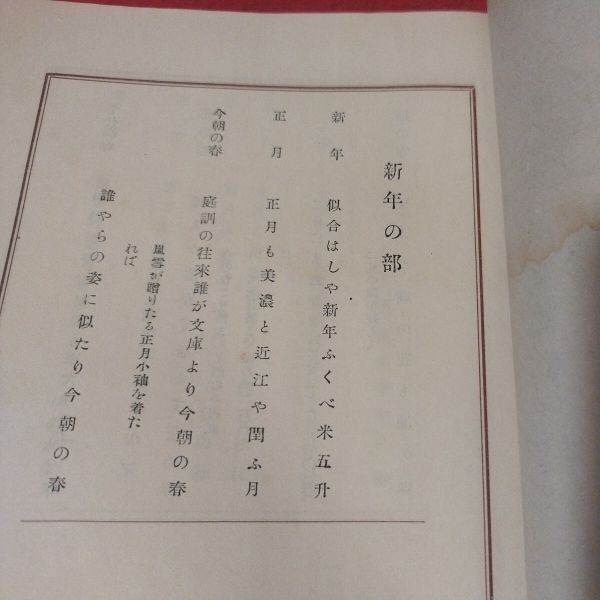 新年の部
新年 似合はしや新年ふくべ米五升
正月 正月も美濃と近江や閏ふ月
今朝の春 庭訓の往來誰が文庫より今朝の春
嵐雪が贈りたる正月小袖を着た
れば
誰やらの姿に似たり今朝の春